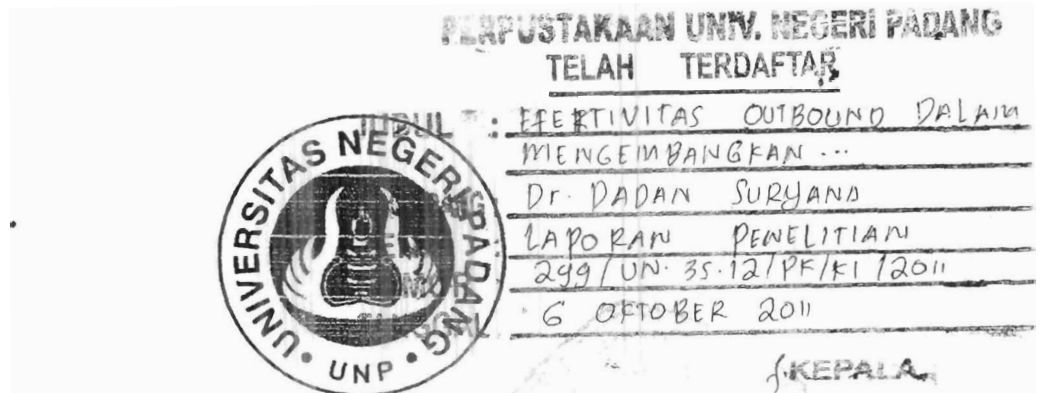 PERPUSTAKAAN UNIV. NEGERI PADANG
TELAH TERDAFTAR
JUDUL : EFEKTIVITAS OUTBOUND DALAM
MENGEMBANGKAN ...
Dr. DADAN SURYANA
LAPORAN PENELITIAN
299/UN. 35.12/PK/KI/2011
6 OKTOBER 2011
KEPALA
UNIVERSITAS NEGERI PADANG
UNP